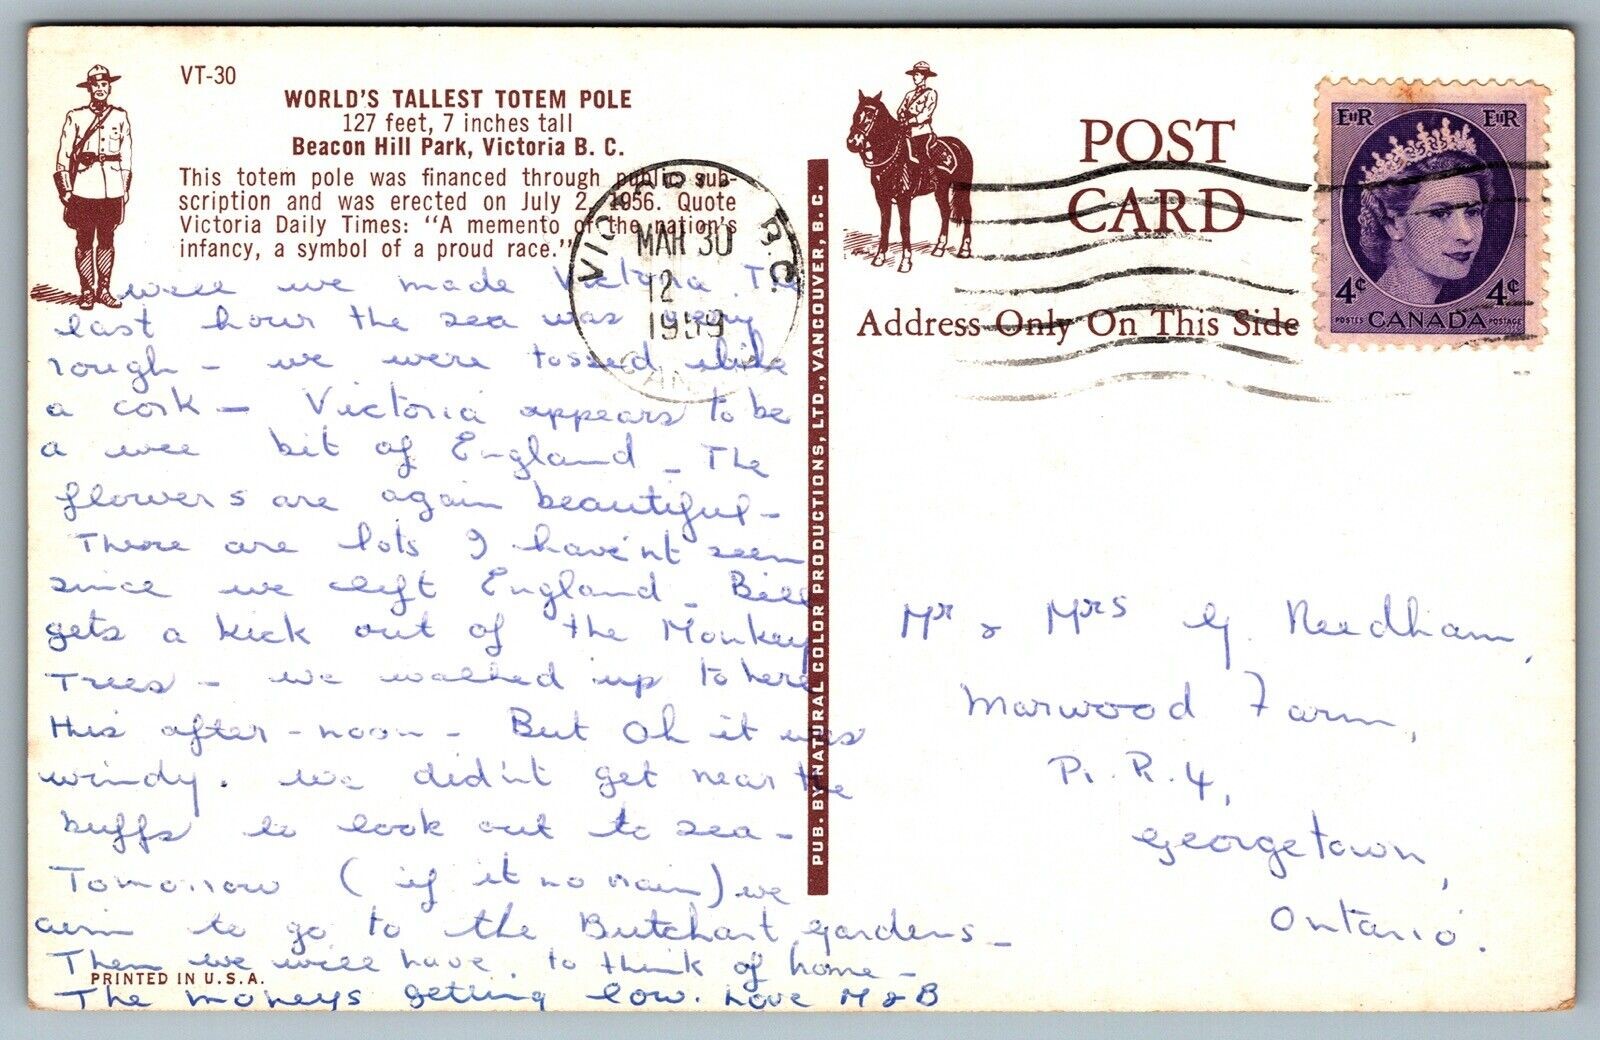 VT-30
WORLD'S TALLEST TOTEM POLE
127 feet, 7 inches tall
Beacon Hill Park, Victoria B. C.
This totem pole was financed through public sub-
scription and was erected on July 2, 1956. Quote
Victoria Daily Times: "A memento of the nation's
infancy, a symbol of a proud race."
well we made Victoria. The
last hour the sea was very
rough - we were tossed like
a cork - Victoria appears to be
a wee bit of England - The
flowers are again beautiful -
There are lots I have'nt seen
since we left England. Bill
gets a kick out of the Monkey
Trees - we walked up to here
this after-noon - But Oh it was
windy. we did'nt get near the
buffs to look out to sea -
Tomorrow (if it no rain) we
aim to go to the Butchart gardens -
Then we will have to think of home -
The moneys getting low. Love M & B
PRINTED IN U.S.A.
VICTORIA B.C.
MAR 30
12
1959
CANADA
PUB. BY NATURAL COLOR PRODUCTIONS, LTD., VANCOUVER, B. C.
POST
CARD
Address Only On This Side
EIIR EIIR
4¢ 4¢
POSTES CANADA POSTAGE
Mr & Mrs G. Needham,
Marwood Farm,
R. R. 4,
Georgetown,
Ontario.